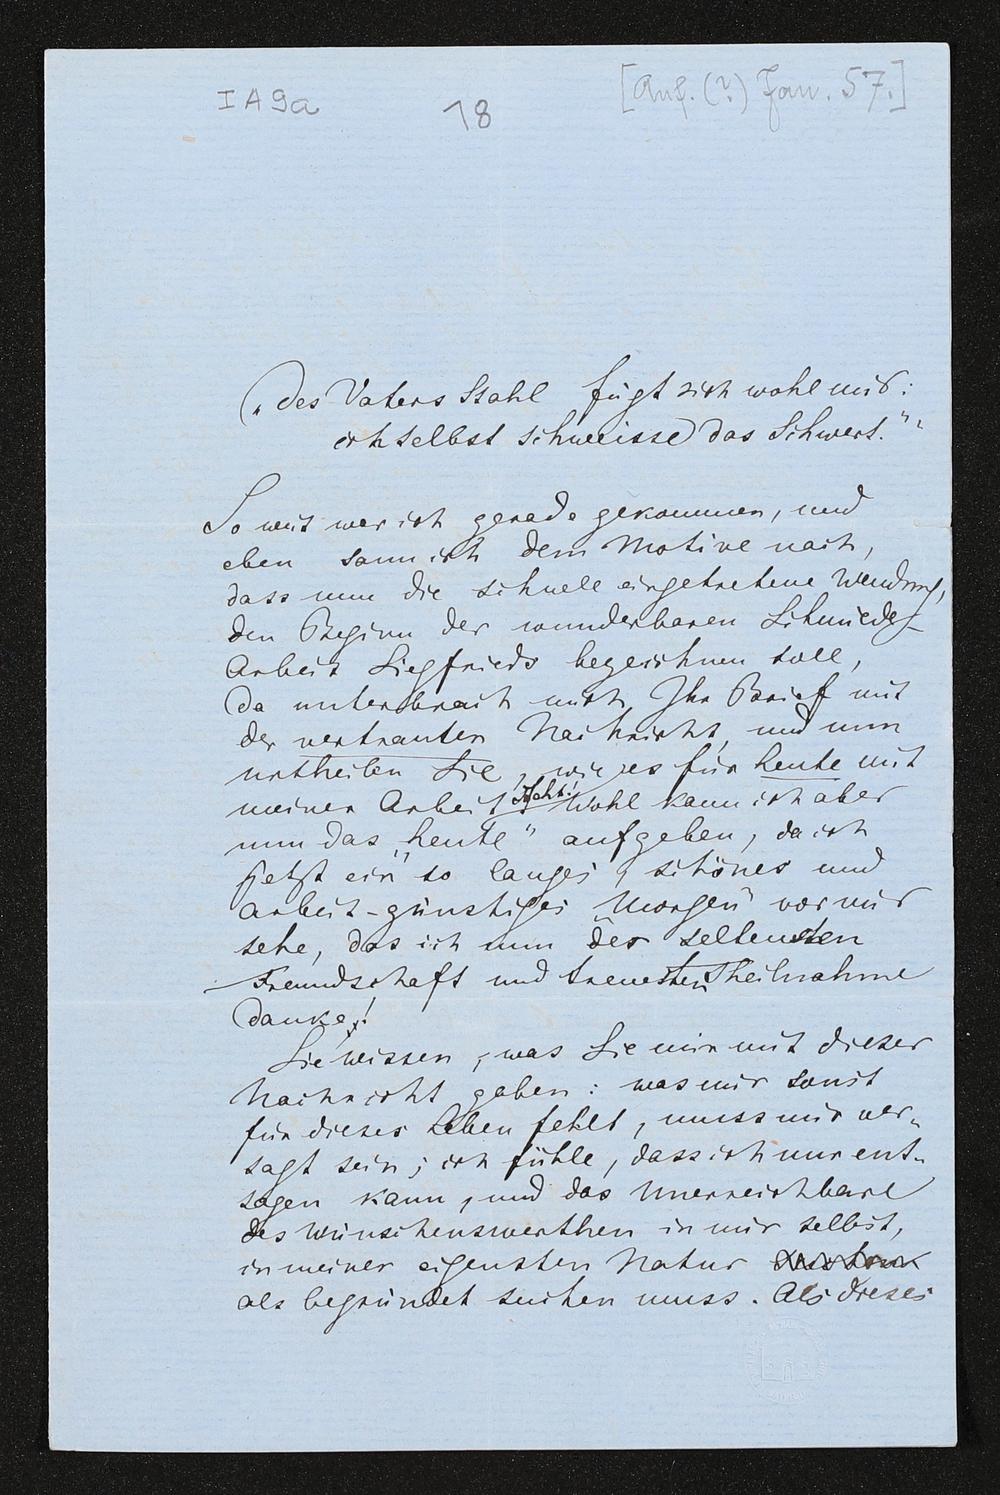 I A 9a
18
[Anf. (?) Jan. 57.]
„des Vaters Stahl fügt sich wohl mir:
ich selbst schweisse das Schwert.“
So weit war ich gerade gekommen, und
eben sann ich dem Motive nach,
dass nun die schnell eingetretene Wendung,
den Beginn der wunderbaren Schmiede-
Arbeit Siegfrieds bezeichnen soll,
da unterbrach mich Ihr Brief mit
der vertrauten Nachricht, und nun
urtheilen Sie, wie es für heute mit
meiner Arbeit steht! Wohl kann ich aber
nun das „heute“ aufgeben, da ich
jetzt ein so langes, schönes und
arbeit-günstiges „Morgen“ vor mir
sehe, das ich nun der seltensten
Freundschaft und treuesten Theilnahme
danke!
Sie wissen, was Sie mir mit dieser
Nachricht gaben: was mir sonst
für dieses Leben fehlt, muss mir ver-
sagt sein; ich fühle, dass ich nur ent-
sagen kann, und das Unerreichbare
des Wünschenswerthen in mir selbst,
in meiner eigensten Natur
als begründet suchen muss. Als dieses